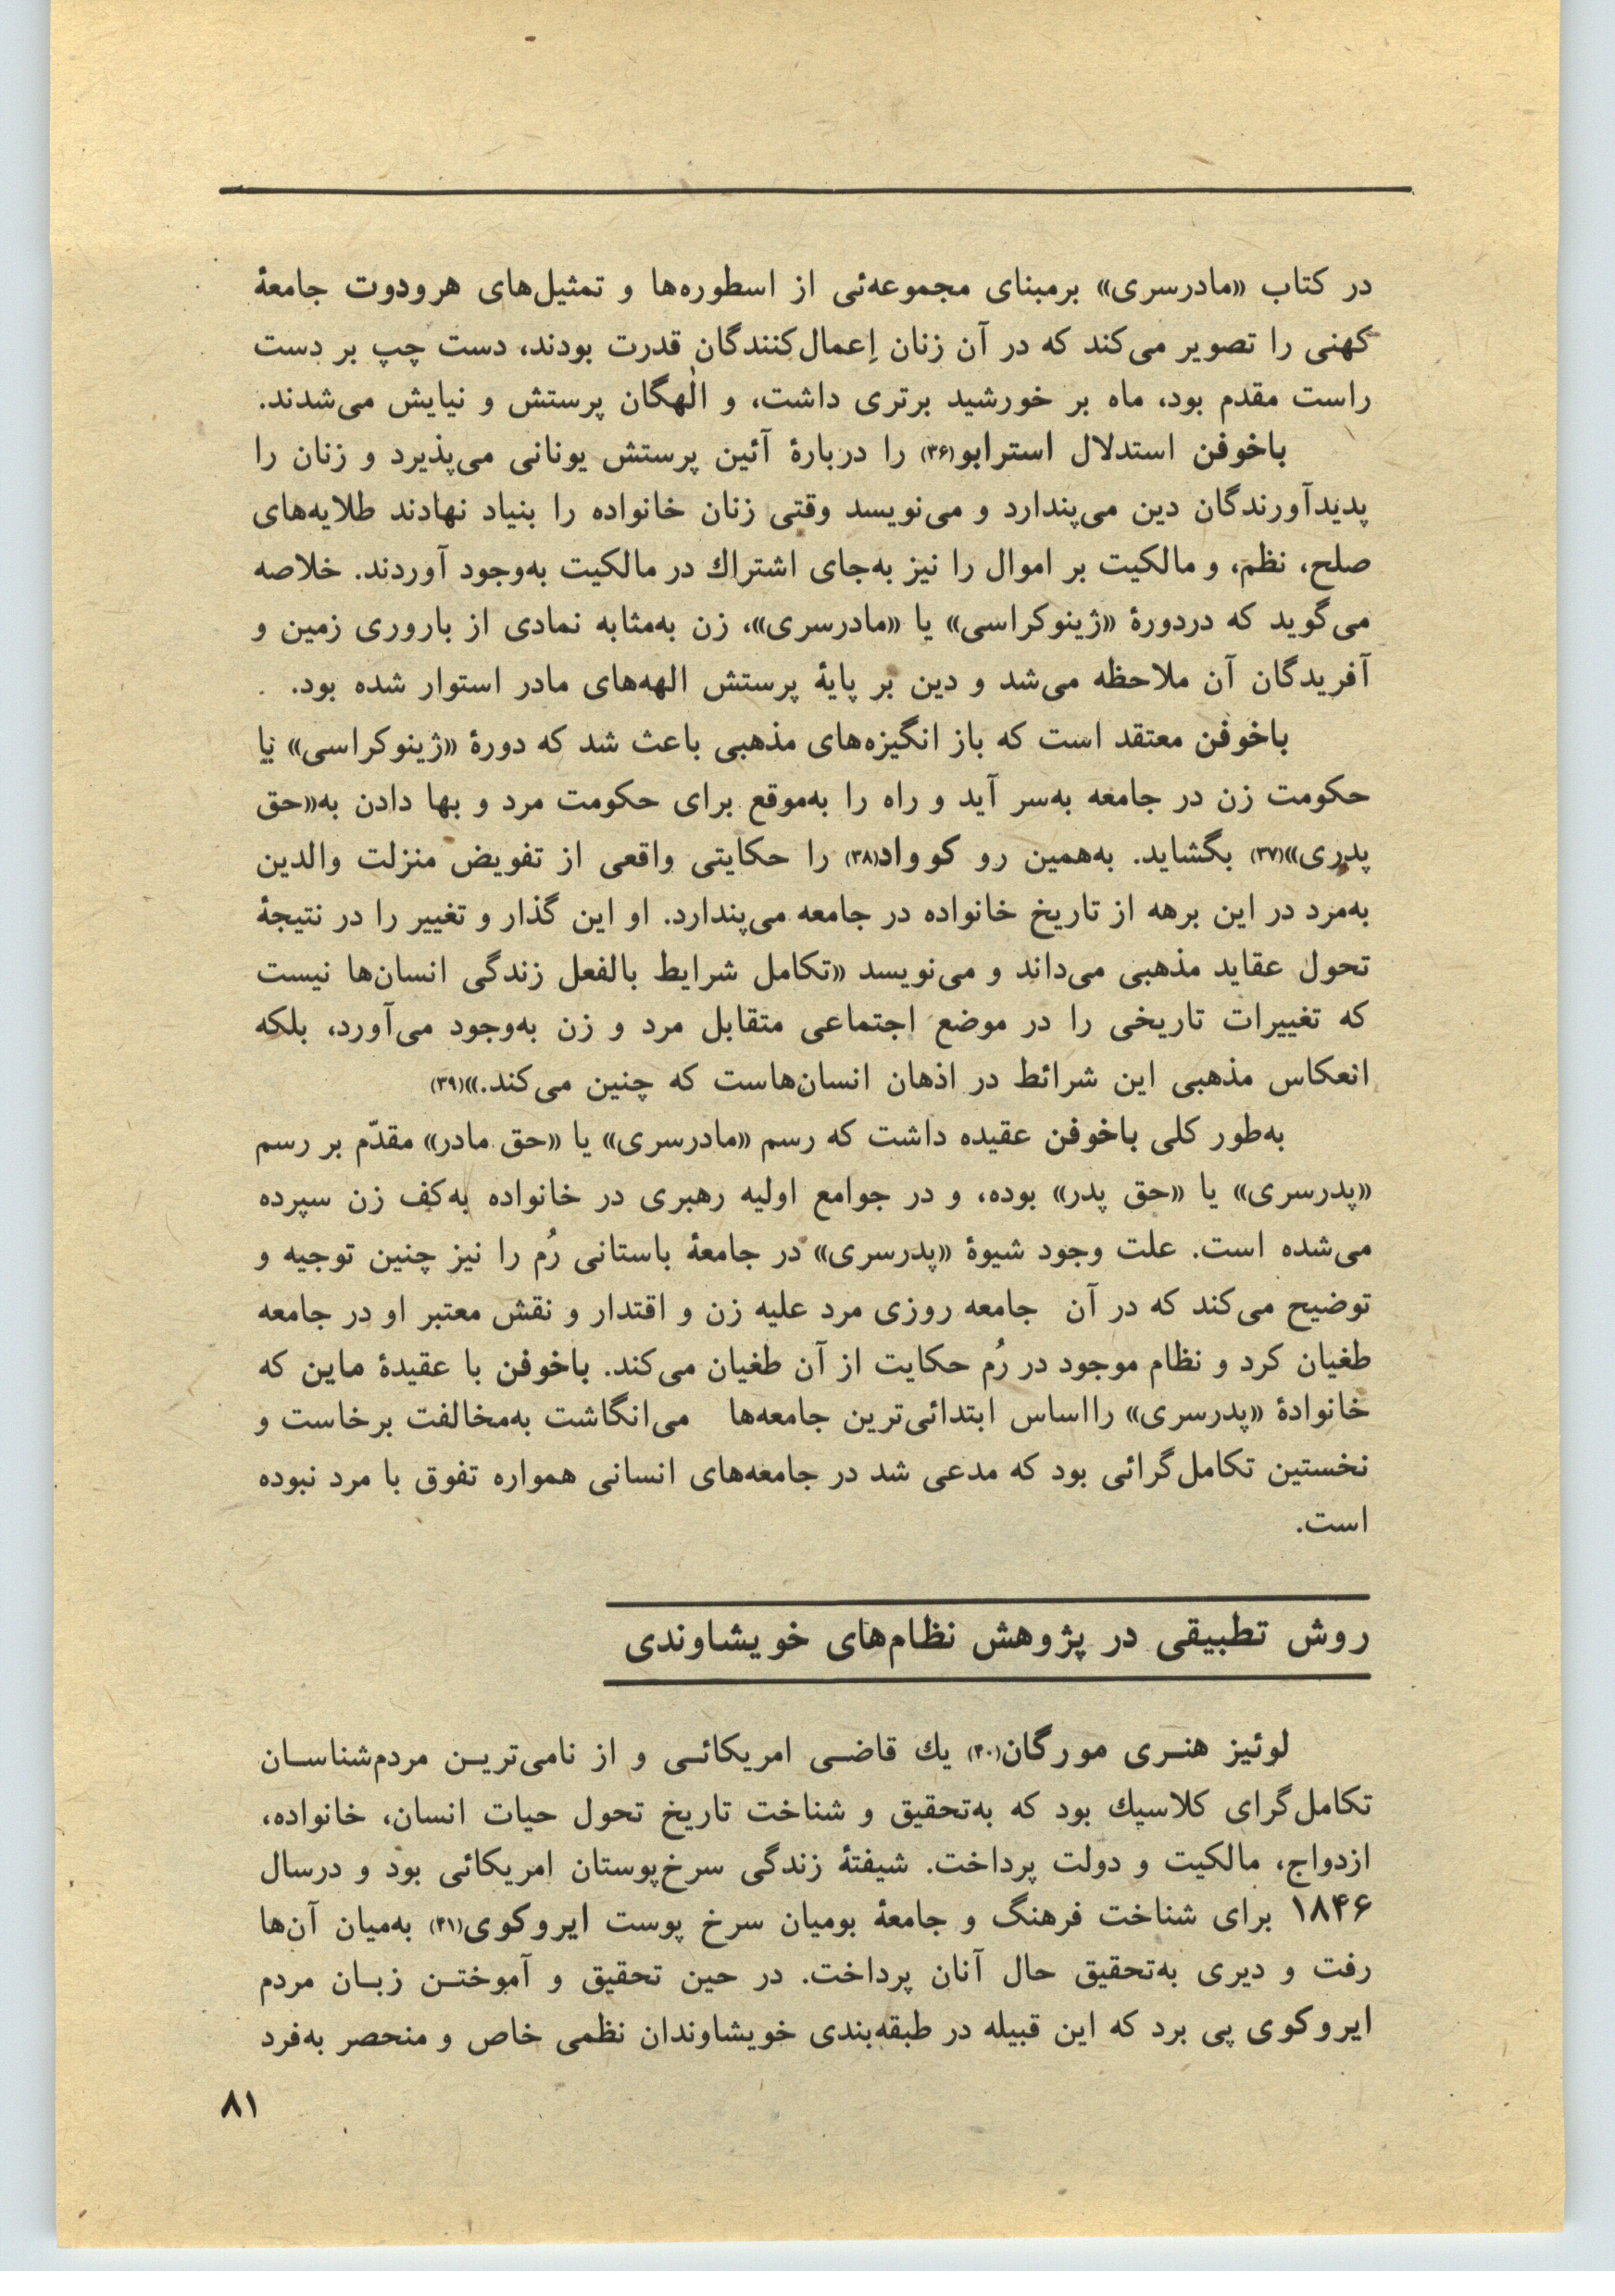 در کتاب «مادرسری» برمبنای مجموعه‌ئی از اسطوره‌ها و تمثیل‌های هرودوت جامعهٔ
کهنی را تصویر می‌کند که در آن زنان اِعمال‌کنندگان قدرت بودند، دست چپ بر دست
راست مقدم بود، ماه بر خورشید برتری داشت، و الٰهگان پرستش و نیایش می‌شدند.
باخوفن استدلال استرابو(۳۶) را دربارهٔ آئین پرستش یونانی می‌پذیرد و زنان را
پدیدآورندگان دین می‌پندارد و می‌نویسد وقتی زنان خانواده را بنیاد نهادند طلایه‌های
صلح، نظم، و مالکیت بر اموال را نیز به‌جای اشتراك در مالکیت به‌وجود آوردند. خلاصه
می‌گوید که دردورهٔ «ژینوکراسی» یا «مادرسری»، زن به‌مثابه نمادی از باروری زمین و
آفریدگان آن ملاحظه می‌شد و دین بر پایهٔ پرستش الهه‌های مادر استوار شده بود.
باخوفن معتقد است که باز انگیزه‌های مذهبی باعث شد که دورهٔ «ژینوکراسی» یا
حکومت زن در جامعه به‌سر آید و راه را به‌موقع برای حکومت مرد و بها دادن به‌«حق
پدری»(۳۷) بگشاید. به‌همین رو کوواد(۳۸) را حکایتی واقعی از تفویض منزلت والدین
به‌مرد در این برهه از تاریخ خانواده در جامعه می‌پندارد. او این گذار و تغییر را در نتیجهٔ
تحول عقاید مذهبی می‌داند و می‌نویسد «تکامل شرایط بالفعل زندگی انسان‌ها نیست
که تغییرات تاریخی را در موضع اجتماعی متقابل مرد و زن به‌وجود می‌آورد، بلکه
انعکاس مذهبی این شرائط در اذهان انسان‌هاست که چنین می‌کند.»(۳۹)
به‌طور کلی باخوفن عقیده داشت که رسم «مادرسری» یا «حق مادر» مقدّم بر رسم
«پدرسری» یا «حق پدر» بوده، و در جوامع اولیه رهبری در خانواده به‌کف زن سپرده
می‌شده است. علت وجود شیوهٔ «پدرسری» در جامعهٔ باستانی رُم را نیز چنین توجیه و
توضیح می‌کند که در آن جامعه روزی مرد علیه زن و اقتدار و نقش معتبر او در جامعه
طغیان کرد و نظام موجود در رُم حکایت از آن طغیان می‌کند. باخوفن با عقیدهٔ ماین که
خانوادهٔ «پدرسری» رااساس ابتدائی‌ترین جامعه‌ها می‌انگاشت به‌مخالفت برخاست و
نخستین تکامل‌گرائی بود که مدعی شد در جامعه‌های انسانی همواره تفوق با مرد نبوده
است.
روش تطبیقی در پژوهش نظام‌های خویشاوندی
لوئیز هنـری مورگان(۴۰) یك قاضـی امریکائـی و از نامی‌تریـن مردم‌شناسـان
تکامل‌گرای کلاسیك بود که به‌تحقیق و شناخت تاریخ تحول حیات انسان، خانواده،
ازدواج، مالکیت و دولت پرداخت. شیفتهٔ زندگی سرخ‌پوستان امریکائی بود و درسال
۱۸۴۶ برای شناخت فرهنگ و جامعهٔ بومیان سرخ پوست ایروکوی(۴۱) به‌میان آن‌ها
رفت و دیری به‌تحقیق حال آنان پرداخت. در حین تحقیق و آموختـن زبـان مردم
ایروکوی پی برد که این قبیله در طبقه‌بندی خویشاوندان نظمی خاص و منحصر به‌فرد
۸۱